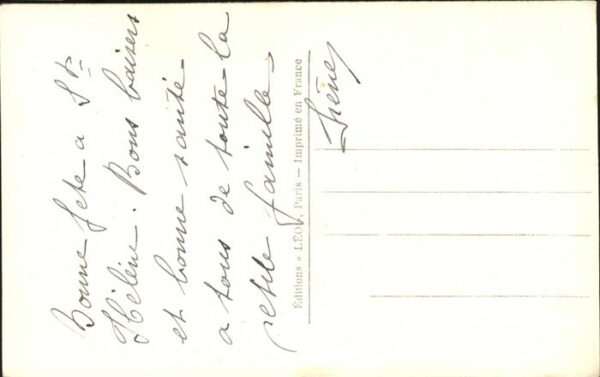 Bonne fete a Ste
Hélène. Bons baisers
et bonne santé
a tous de toute la
petite famille
Editions « LÉO », Paris — Imprimé en France